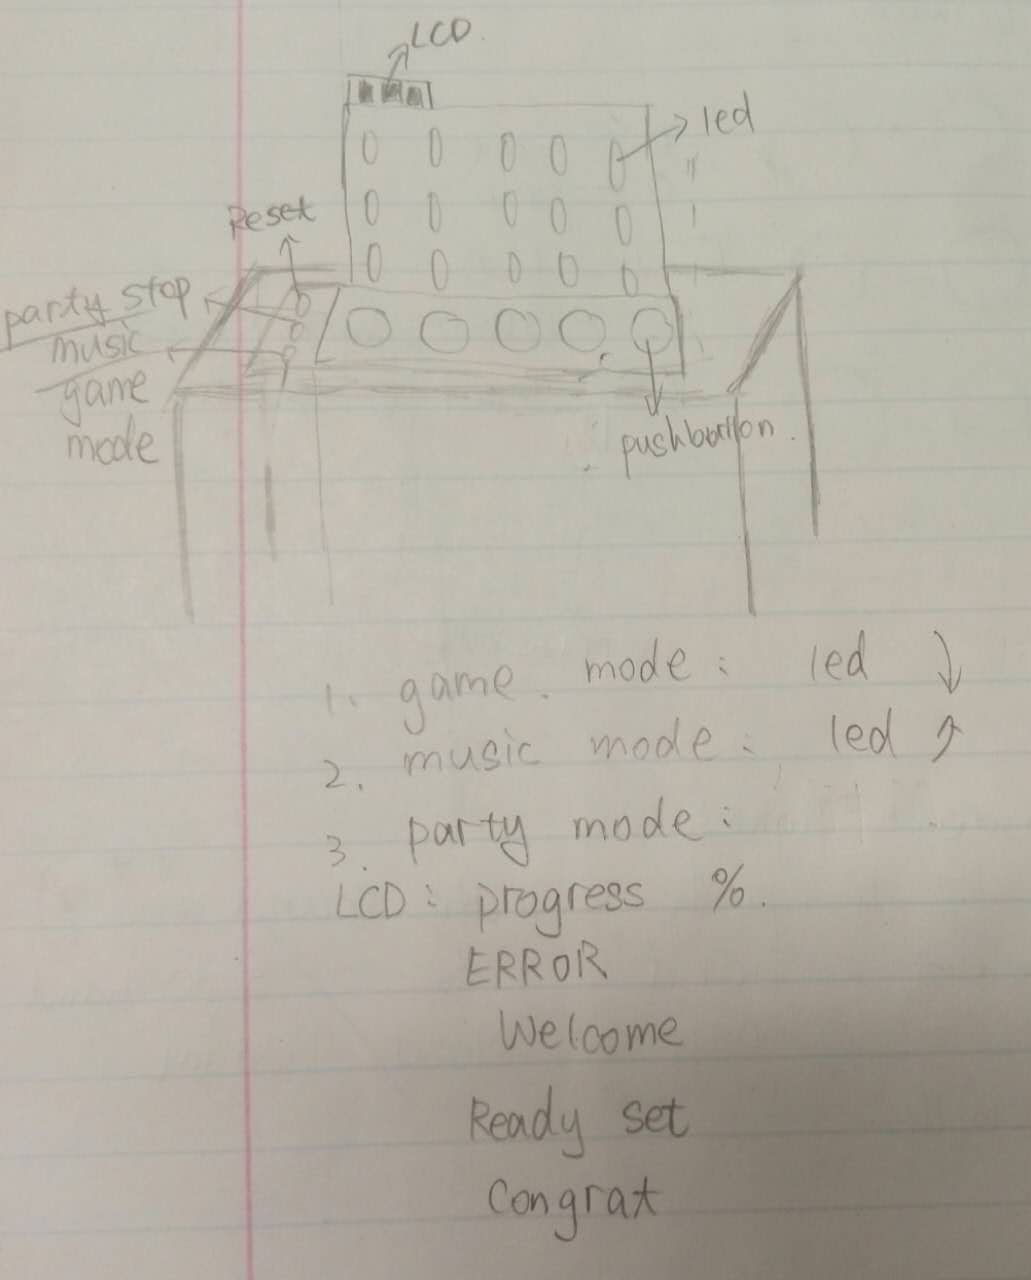 LCD.
led
"
Reset
party stop
music
game
mode
pushbutton.
1. game. mode: led ↓
2. music mode: led ↑
3. party mode:
LCD: progress %.
ERROR
Welcome
Ready set
Congrat